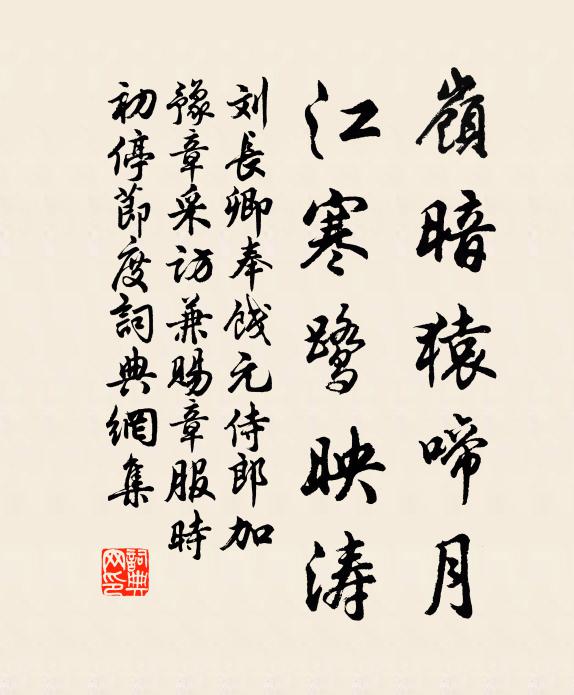 嶺暗猿啼月
江寒鷺映涛
刘長卿奉餞元侍郎加
豫章采訪兼賜章服時
初停節度詞典網集
詞典网印